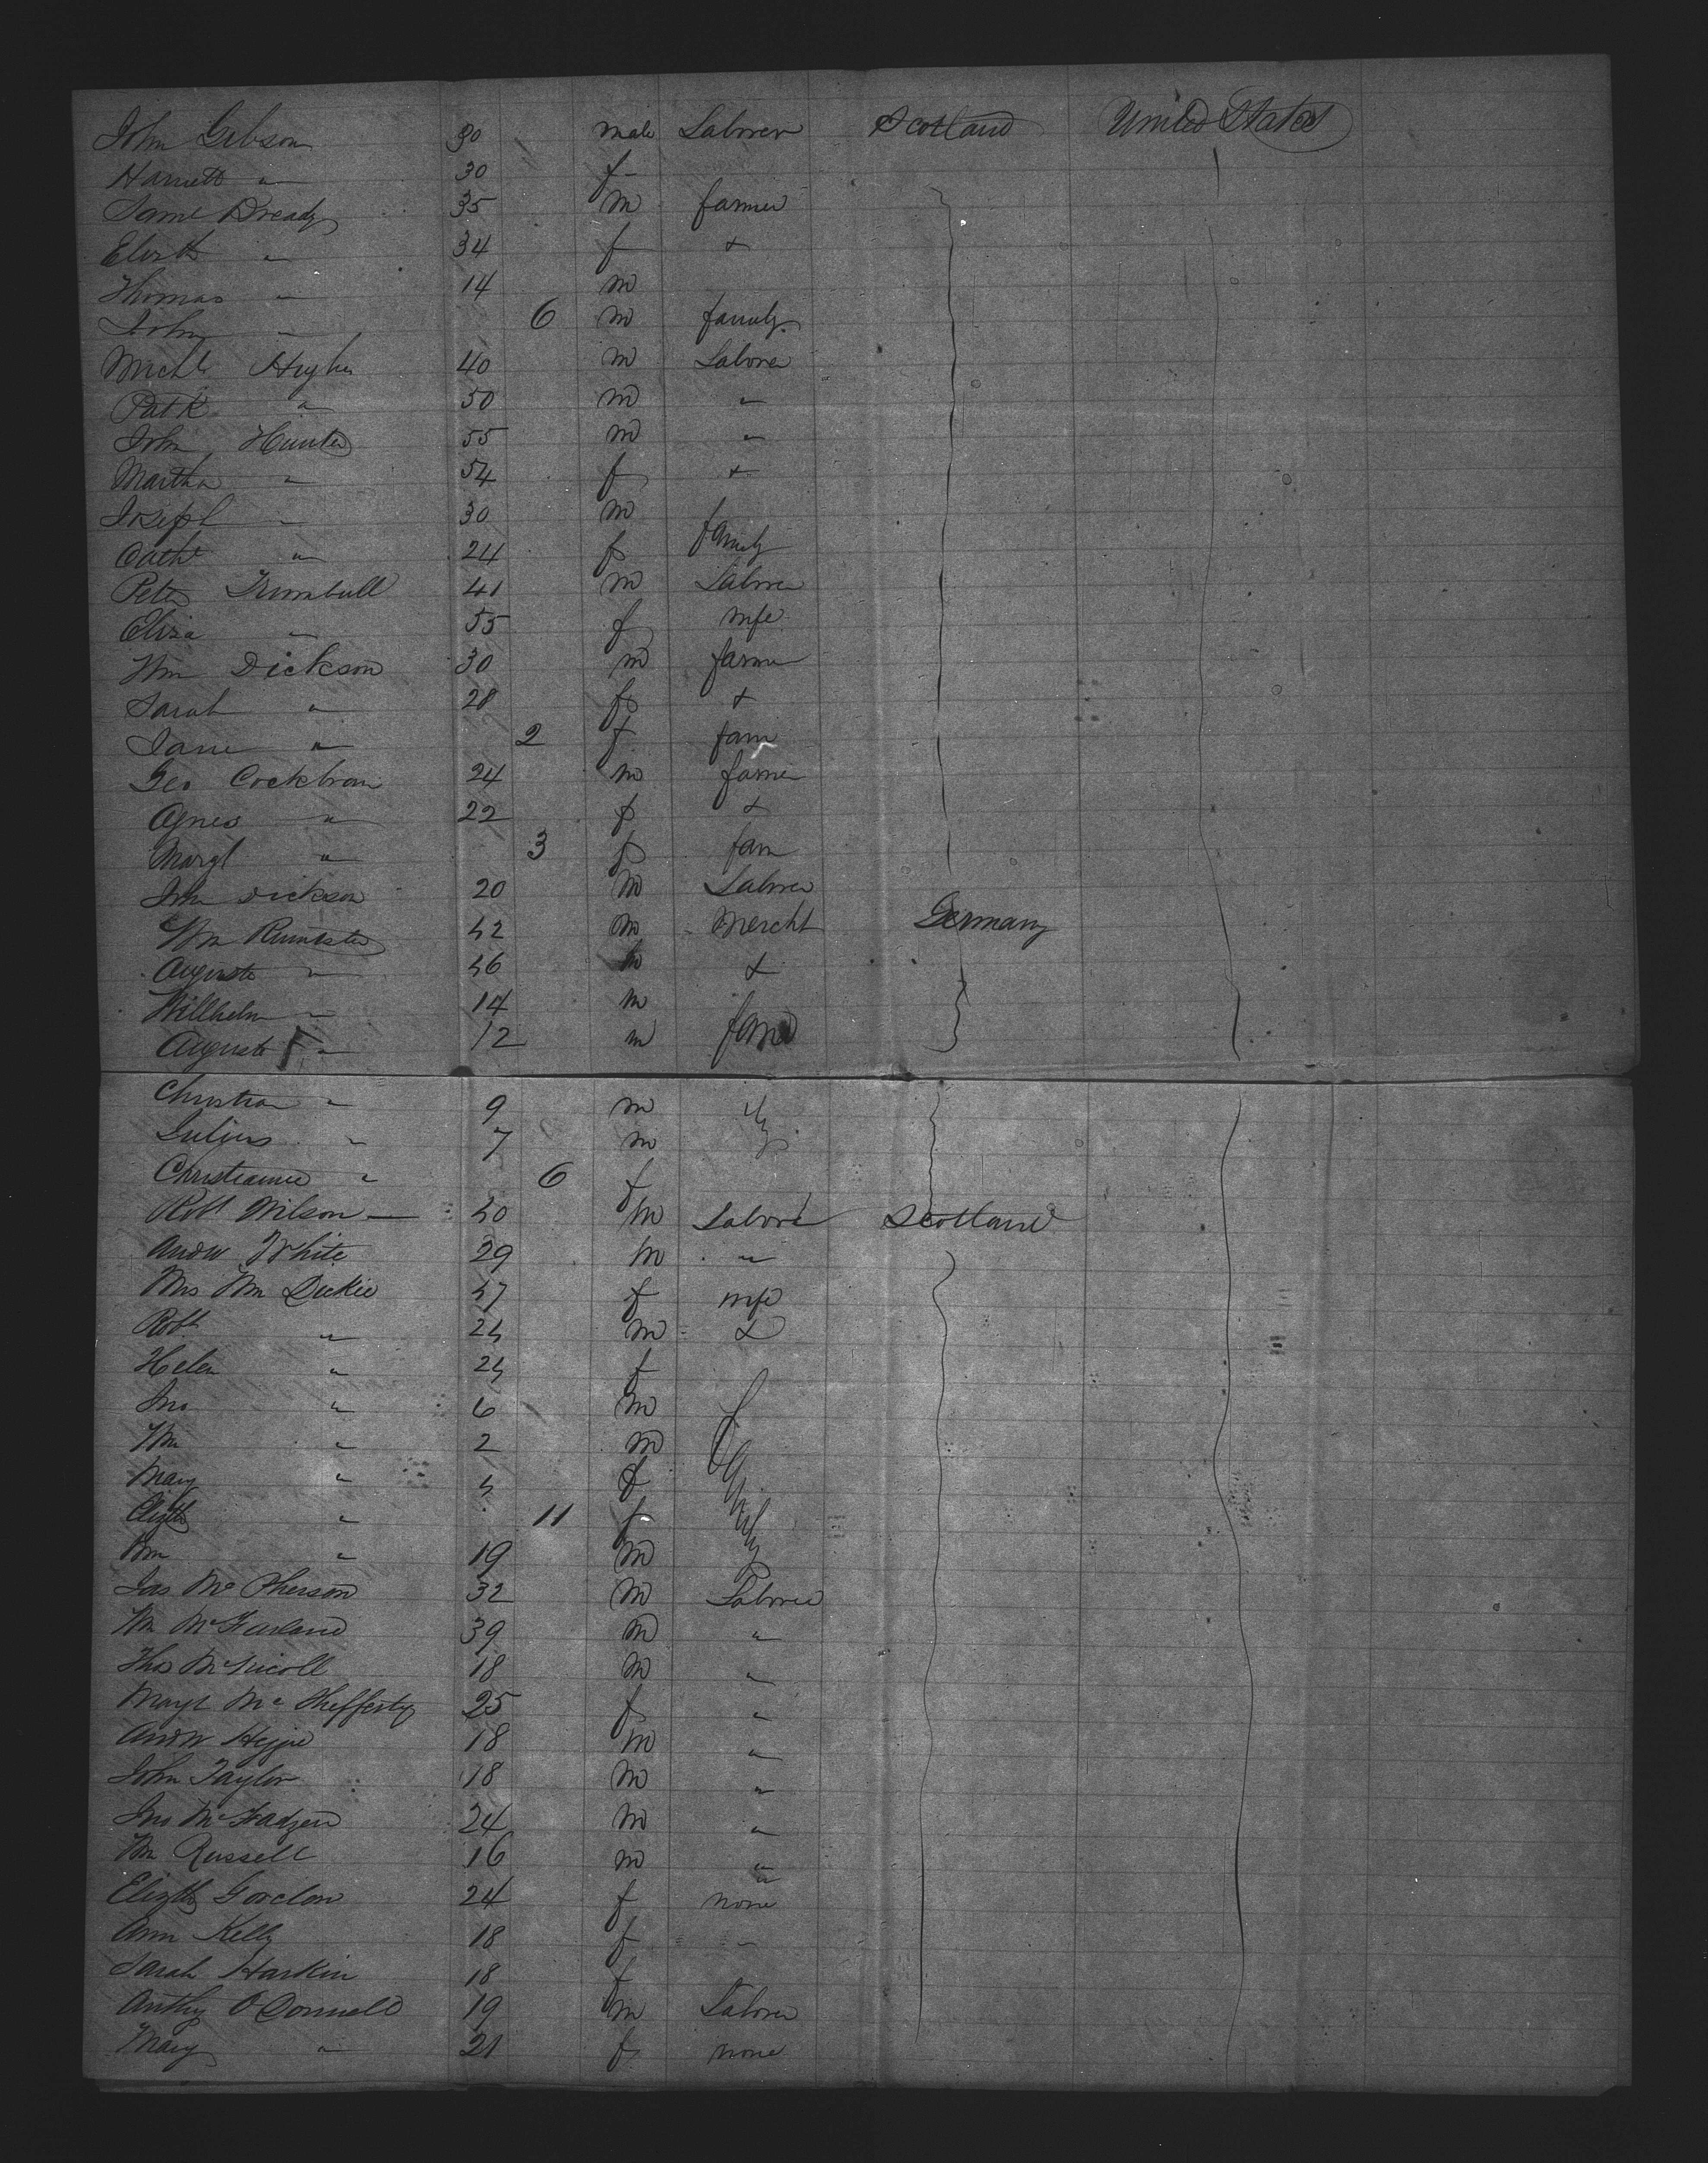 John Gibson 30 male Laborer Scotland United States
Harriett " 30 f
Saml Dready 35 m farmer
Elizth " 34 f &
Thomas " 14 m
John " 6 m family
Michl Hughes 40 m Laborer
Patk " 50 m "
John Hunter 55 m "
Martha " 54 f &
Joseph " 30 m
Cathe " 24 f family
Peter Trumbull 41 m Laborer
Eliza " 55 f wife
Wm Dickson 30 m farmer
Sarah " 28 f &
Jane " 2 f fam
Geo Cockbran 24 m farmer
Agnes " 22 f &
Margt " 3 f fam
John Dickson 20 m Laborer
Wm 42 m Mercht Germany
Auguste " 46 &
Willhelm " 14 m
Auguste F " 12 m fami
Christian " 9 m ly
Julius " 7 m
Christianne " 6 f
Robt Wilson 40 m Laborer Scotland
Andw White 29 m "
Mrs Wm Dickie 47 f wife
Robt " 24 m &
Helen " 24 f
Jno " 6 m family
Wm " 2 m
Mary " 4 f
Elizth " 11 f
Wm " 19 m
Jas McPherson 32 m Laborer
Wm McFarland 39 m "
Thos McNicoll 18 m "
Margt Mc Shefferty 25 f "
Andw 18 m "
John Taylor 18 m "
Jno McFadzen 24 m "
Wm Russell 16 m "
Elizth Gordon 24 f " none
Ann Kelly 18 f "
Sarah Harkin 18 f
Anthy O'Donnell 19 m Laborer
Mary " 21 f none